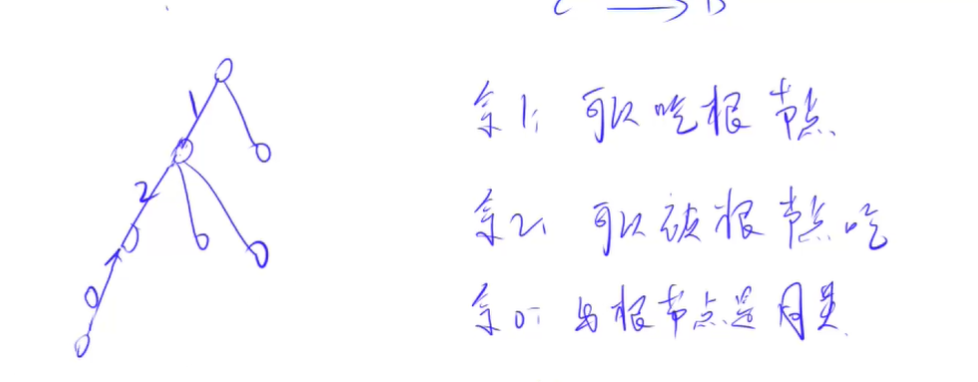 C → B
余1: 可以吃根节点
余2: 可以被根节点吃
余0: 与根节点是同类
1
2
0